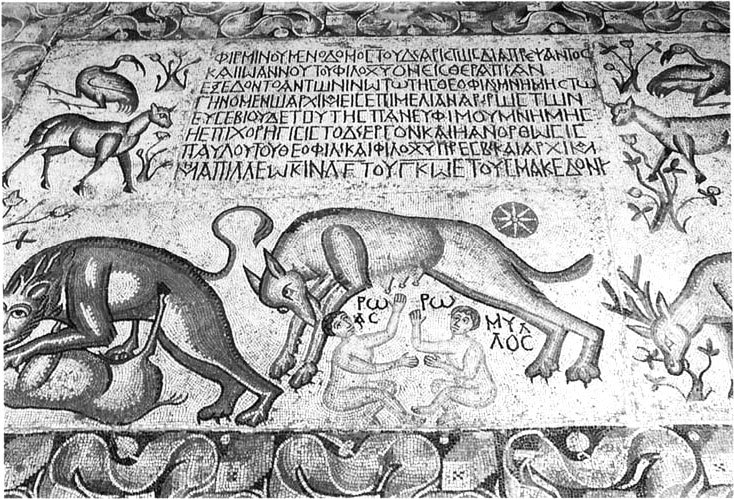 ΦΙΡΜΙΝΟΥΜΕΝΟΔΟΜΟϹΤΟΥΔΕΑΡΙϹΤΩϹΔΙΑΠΡΕΨΑΝΤΟϹ
ΚΑΙΙΩΑΝΝΟΥΤΟΥΦΙΛΟΧΥΟΝΕΙϹΘΕΡΑΠΙΑΝ
ΕΞΕΔΟΝΤΟΑΝΤΩΝΙΝΩΤΩΤΗϹΘΕΟΦΙΛΗΜΝΗΜΗϹΤΩ
ΓΗΝΟΜΕΝΩΑΡΧΙΜΕΙϹΕΠΙΜΕΛΙΑΝΑΡΩϹΤΩΝ
ΕΥϹΕΒΙΟΥΔΕΤΟΥΤΗϹΠΑΝΕΥΦΙΜΟΥΜΝΗΜΗϹ
ΗΕΠΙΧΟΡΗΓΙϹΙϹΤΟΔΕΡΓΟΝΚΑΙΗΑΝΟΡΘΩϹΙϹ
ΠΑΥΛΟΥΤΟΥΘΕΟΦΙΛϹΚΑΙΦΙΛΟΧΥΠΡΕϹΒϹΚΑΙΑΡΧΙΜ
ΜΑΠΙΛΛΕΩΚΙΝΔΕΤΟΥΓΚΩΕΤΟΥϹΜΑΚΕΔΟΝΙ
ΡΩ
ΜϹ
ΡΩ
ΜΥΛ
ΛΟϹ